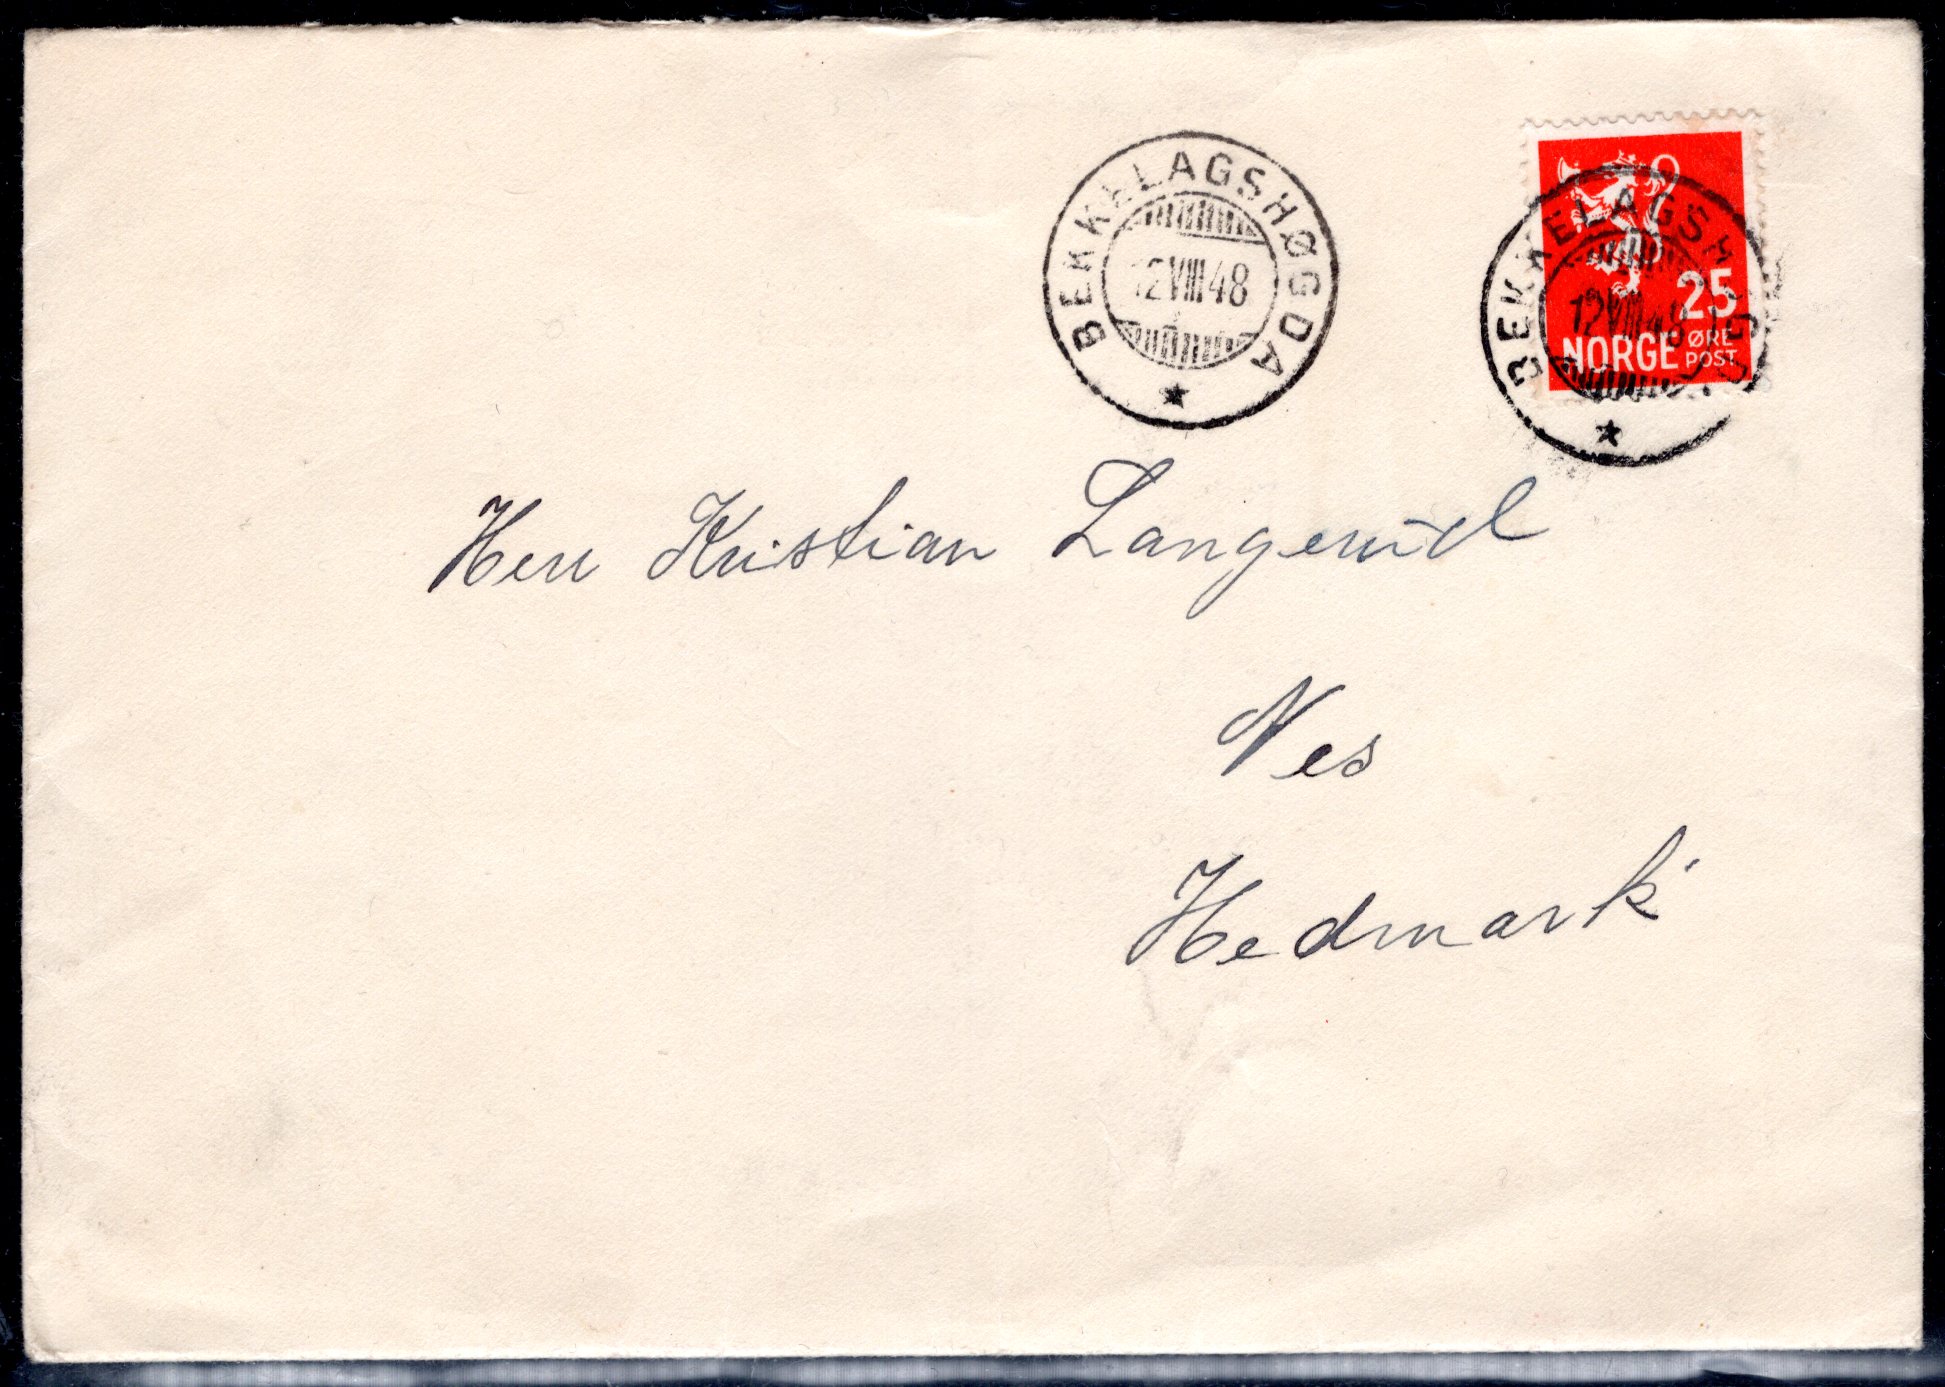 BEKKELAGSHØGDA
12 VIII 48
BEKKELAGSH
12 VIII 48
25
NORGE ØRE
POST
Herr Kristian Langerud
Nes
Hedmark